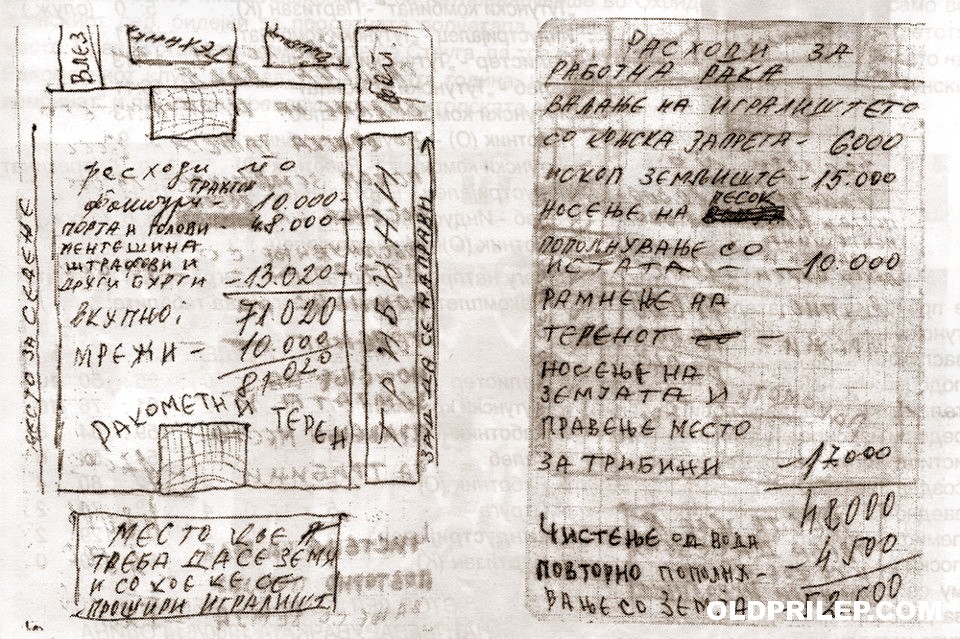 ВЛЕЗ
МЕСТО ЗА СЕДЕЊЕ
расходи по
ТРАКТОР
фактури - 10.000-
ПОРТА И ГОЛОВИ - 48.000-
МЕНТЕШИНА
ШТРАФОВИ И
ДРУГИ БУРГИ - 13.020-
ВКУПНО: 71.020
МРЕЖИ - 10.000
81.020
РАКОМЕТНИ ТЕРЕН
ТРИБИНИ
ЗАШ ДА СЕ НАПРАВИ
МЕСТО КОЕ
ТРЕБА ДА СЕ ЗЕМИ
И СО КОЕ КЕ СЕ
ПРОШИРИ ИГРАЛИШТ
РАСХОДИ ЗА
РАБОТНА РАКА
ВАЛАЊЕ НА ИГРАЛИШТЕТО
СО КОЊСКА ЗАПРЕГА - 6.000
ИСКОП ЗЕМЈИШТЕ - 15.000
НОСЕЊЕ НА ПЕСОК
ПОПОЛНУВАЊЕ СО
ИСТАТА - - 10.000
РАМНЕЊЕ НА
ТЕРЕНОТ -
НОСЕЊЕ НА
ЗЕМЈАТА И
ПРАВЕЊЕ МЕСТО
ЗА ТРИБИНИ - 17.000
48000
ЧИСТЕЊЕ ОД ВОДА
ПОВТОРНО ПОПОЛН - 4.500
ВАЊЕ СО ЗЕМЈА 52.500
OLDPRILEP.COM